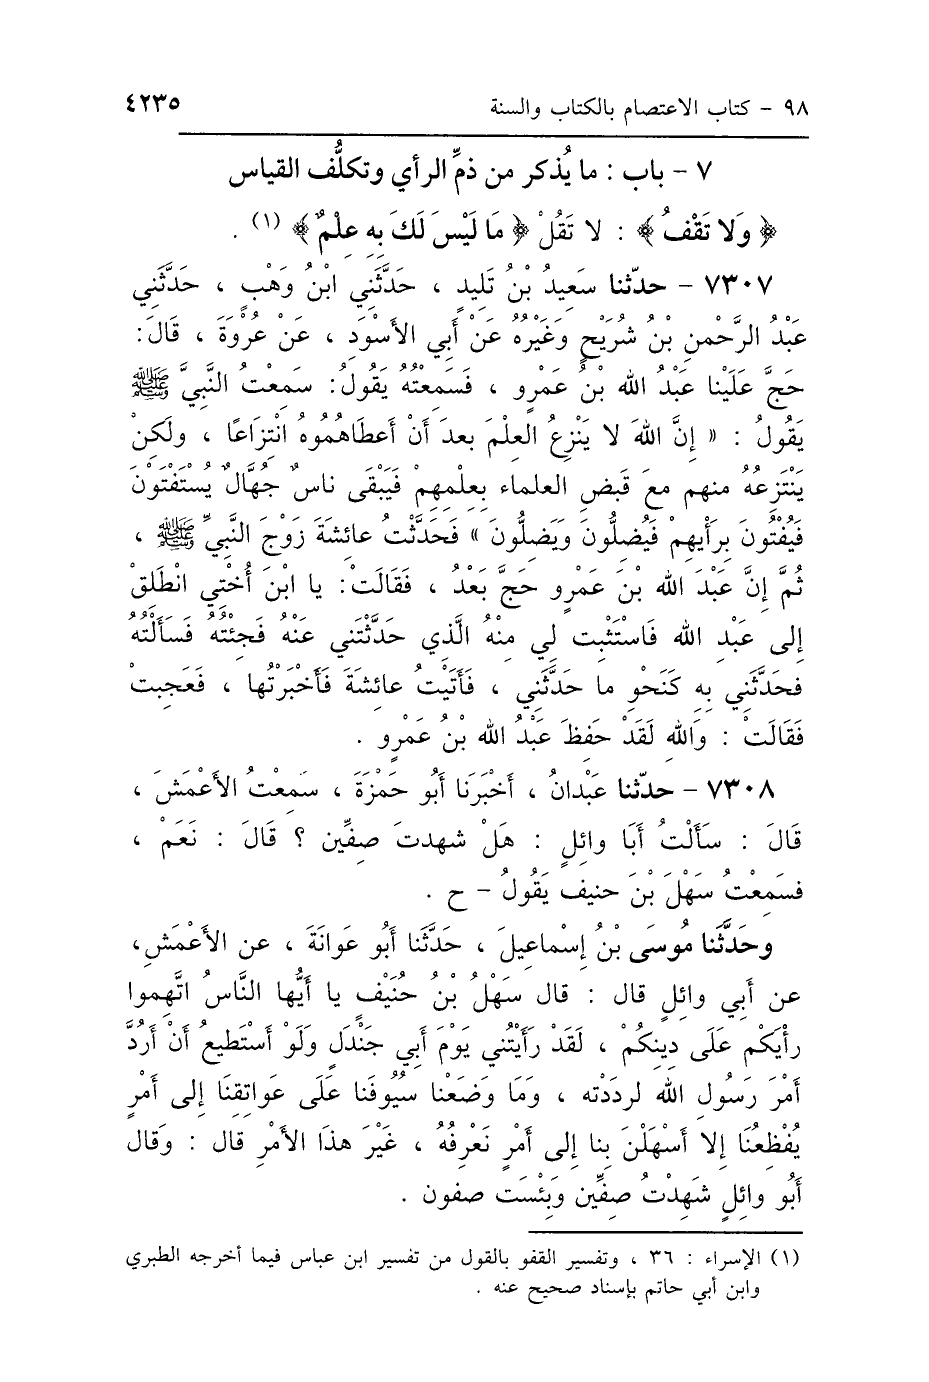 ٩٨ - كتاب الاعتصام بالكتاب والسنة ٤٢٣٥
٧ - باب : ما يُذكر من ذمِّ الرأي وتكلُّف القياس
﴿ وَلا تَقْفُ ﴾ : لا تَقُلْ ﴿ مَا لَيْسَ لَكَ بِهِ عِلْمٌ ﴾ (١) .
٧٣٠٧ - حدّثنا سَعِيدُ بْنُ تَلِيدٍ ، حَدَّثَنِي ابْنُ وَهْبٍ ، حَدَّثَنِي
عَبْدُ الرَّحْمنِ بْنُ شُرَيْحٍ وَغَيْرُهُ عَنْ أَبِي الأَسْوَدِ ، عَنْ عُرْوَةَ ، قَالَ :
حَجَّ عَلَيْنا عَبْدُ اللهِ بْنُ عَمْرٍو ، فَسَمِعتُهُ يَقُولُ : سَمِعتُ النَّبِيَّ ﷺ
يَقُولُ : « إنَّ اللهَ لا يَنْزِعُ العِلْمَ بعدَ أَنْ أَعطَاهُمُوهُ انْتِزَاعًا ، ولكِنْ
يَنْتَزِعُهُ مِنهم معَ قَبضِ العلماء بِعِلْمِهِمْ فَيَبْقَى ناسٌ جُهَّالٌ يُستَفْتَوْنَ
فَيُفْتُونَ بِرَأْيِهِمْ فَيُضِلُّونَ وَيَضِلُّونَ » فَحَدَّثْتُ عائِشَةَ زَوْجَ النَّبِيِّ ﷺ ،
ثُمَّ إنَّ عَبْدَ اللهِ بْنَ عَمْرٍو حَجَّ بَعْدُ ، فَقَالَتْ : يا ابْنَ أُخْتِي انْطَلِقْ
إلى عَبْدِ اللهِ فَاسْتَثْبِت لِي مِنْهُ الَّذِي حَدَّثْتَنِي عَنْهُ فَجِئتُهُ فَسأَلْتُهُ
فَحَدَّثَنِي بِهِ كَنَحْوِ ما حَدَّثَنِي ، فَأَتَيْتُ عائِشَةَ فَأَخْبَرْتُها ، فَعَجِبتْ
فَقَالَتْ : وَاللهِ لَقَدْ حَفِظَ عَبْدُ اللهِ بْنُ عَمْرٍو .
٧٣٠٨ - حدّثنا عَبْدَانُ ، أَخْبَرَنَا أَبُو حَمْزَةَ ، سَمِعتُ الأَعْمَشَ ،
قَالَ : سَأَلْتُ أَبَا وائِلٍ : هَلْ شهِدتَ صِفِّين ؟ قَالَ : نَعَمْ ،
فسَمِعْتُ سَهْلَ بْنَ حنيف يَقُولُ - ح .
وحَدَّثَنا مُوسَى بْنُ إسْماعِيلَ ، حَدَّثَنا أَبُو عَوانَةَ ، عن الأَعْمَشِ ،
عن أَبِي وائِلٍ قال : قال سَهْلُ بْنُ حُنَيْفٍ يا أَيُّها النَّاسُ اتَّهِموا
رأْيَكُم عَلَى دِينِكُمْ ، لَقَدْ رَأَيْتُنِي يَوْمَ أَبِي جَنْدَلٍ وَلَوْ أَسْتَطِيعُ أَنْ أَرُدَّ
أَمْرَ رَسُولِ اللهِ لردَدْته ، وَمَا وَضَعْنا سُيُوفَنا عَلَى عَواتِقِنَا إلى أَمْرٍ
يُفْظِعُنَا إلا أَسْهَلْنَ بِنا إلى أَمْرٍ نَعْرِفُهُ ، غَيْرَ هذَا الأَمْرِ قال : وَقال
أَبُو وائِلٍ شَهِدْتُ صِفِّين وَبِئْسَت صفون .
(١) الإسراء : ٣٦ ، وتفسير القفو بالقول من تفسير ابن عباس فيما أخرجه الطبري
وابن أبي حاتم بإسناد صحيح عنه .